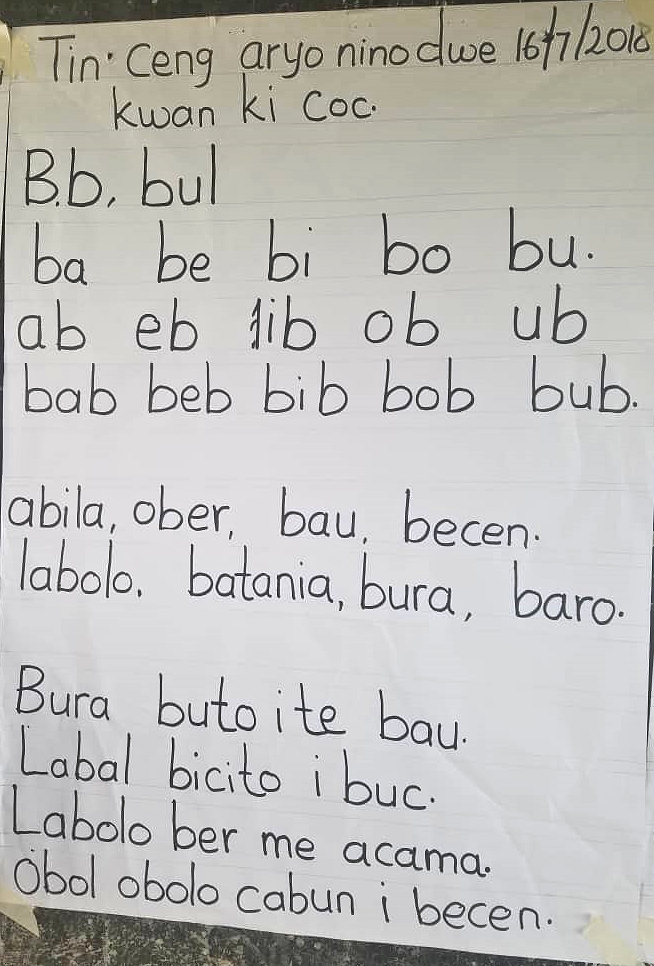 Tin. Ceng aryo nino dwe 16/7/2018
kwan ki coc.
B.b, bul
ba be bi bo bu.
ab eb ib ob ub
bab beb bib bob bub.
abila, ober, bau, becen.
labolo. batania, bura, baro.
Bura buto i te bau.
Labal bicito i buc.
Labolo ber me acama.
Obol obolo cabun i becen.